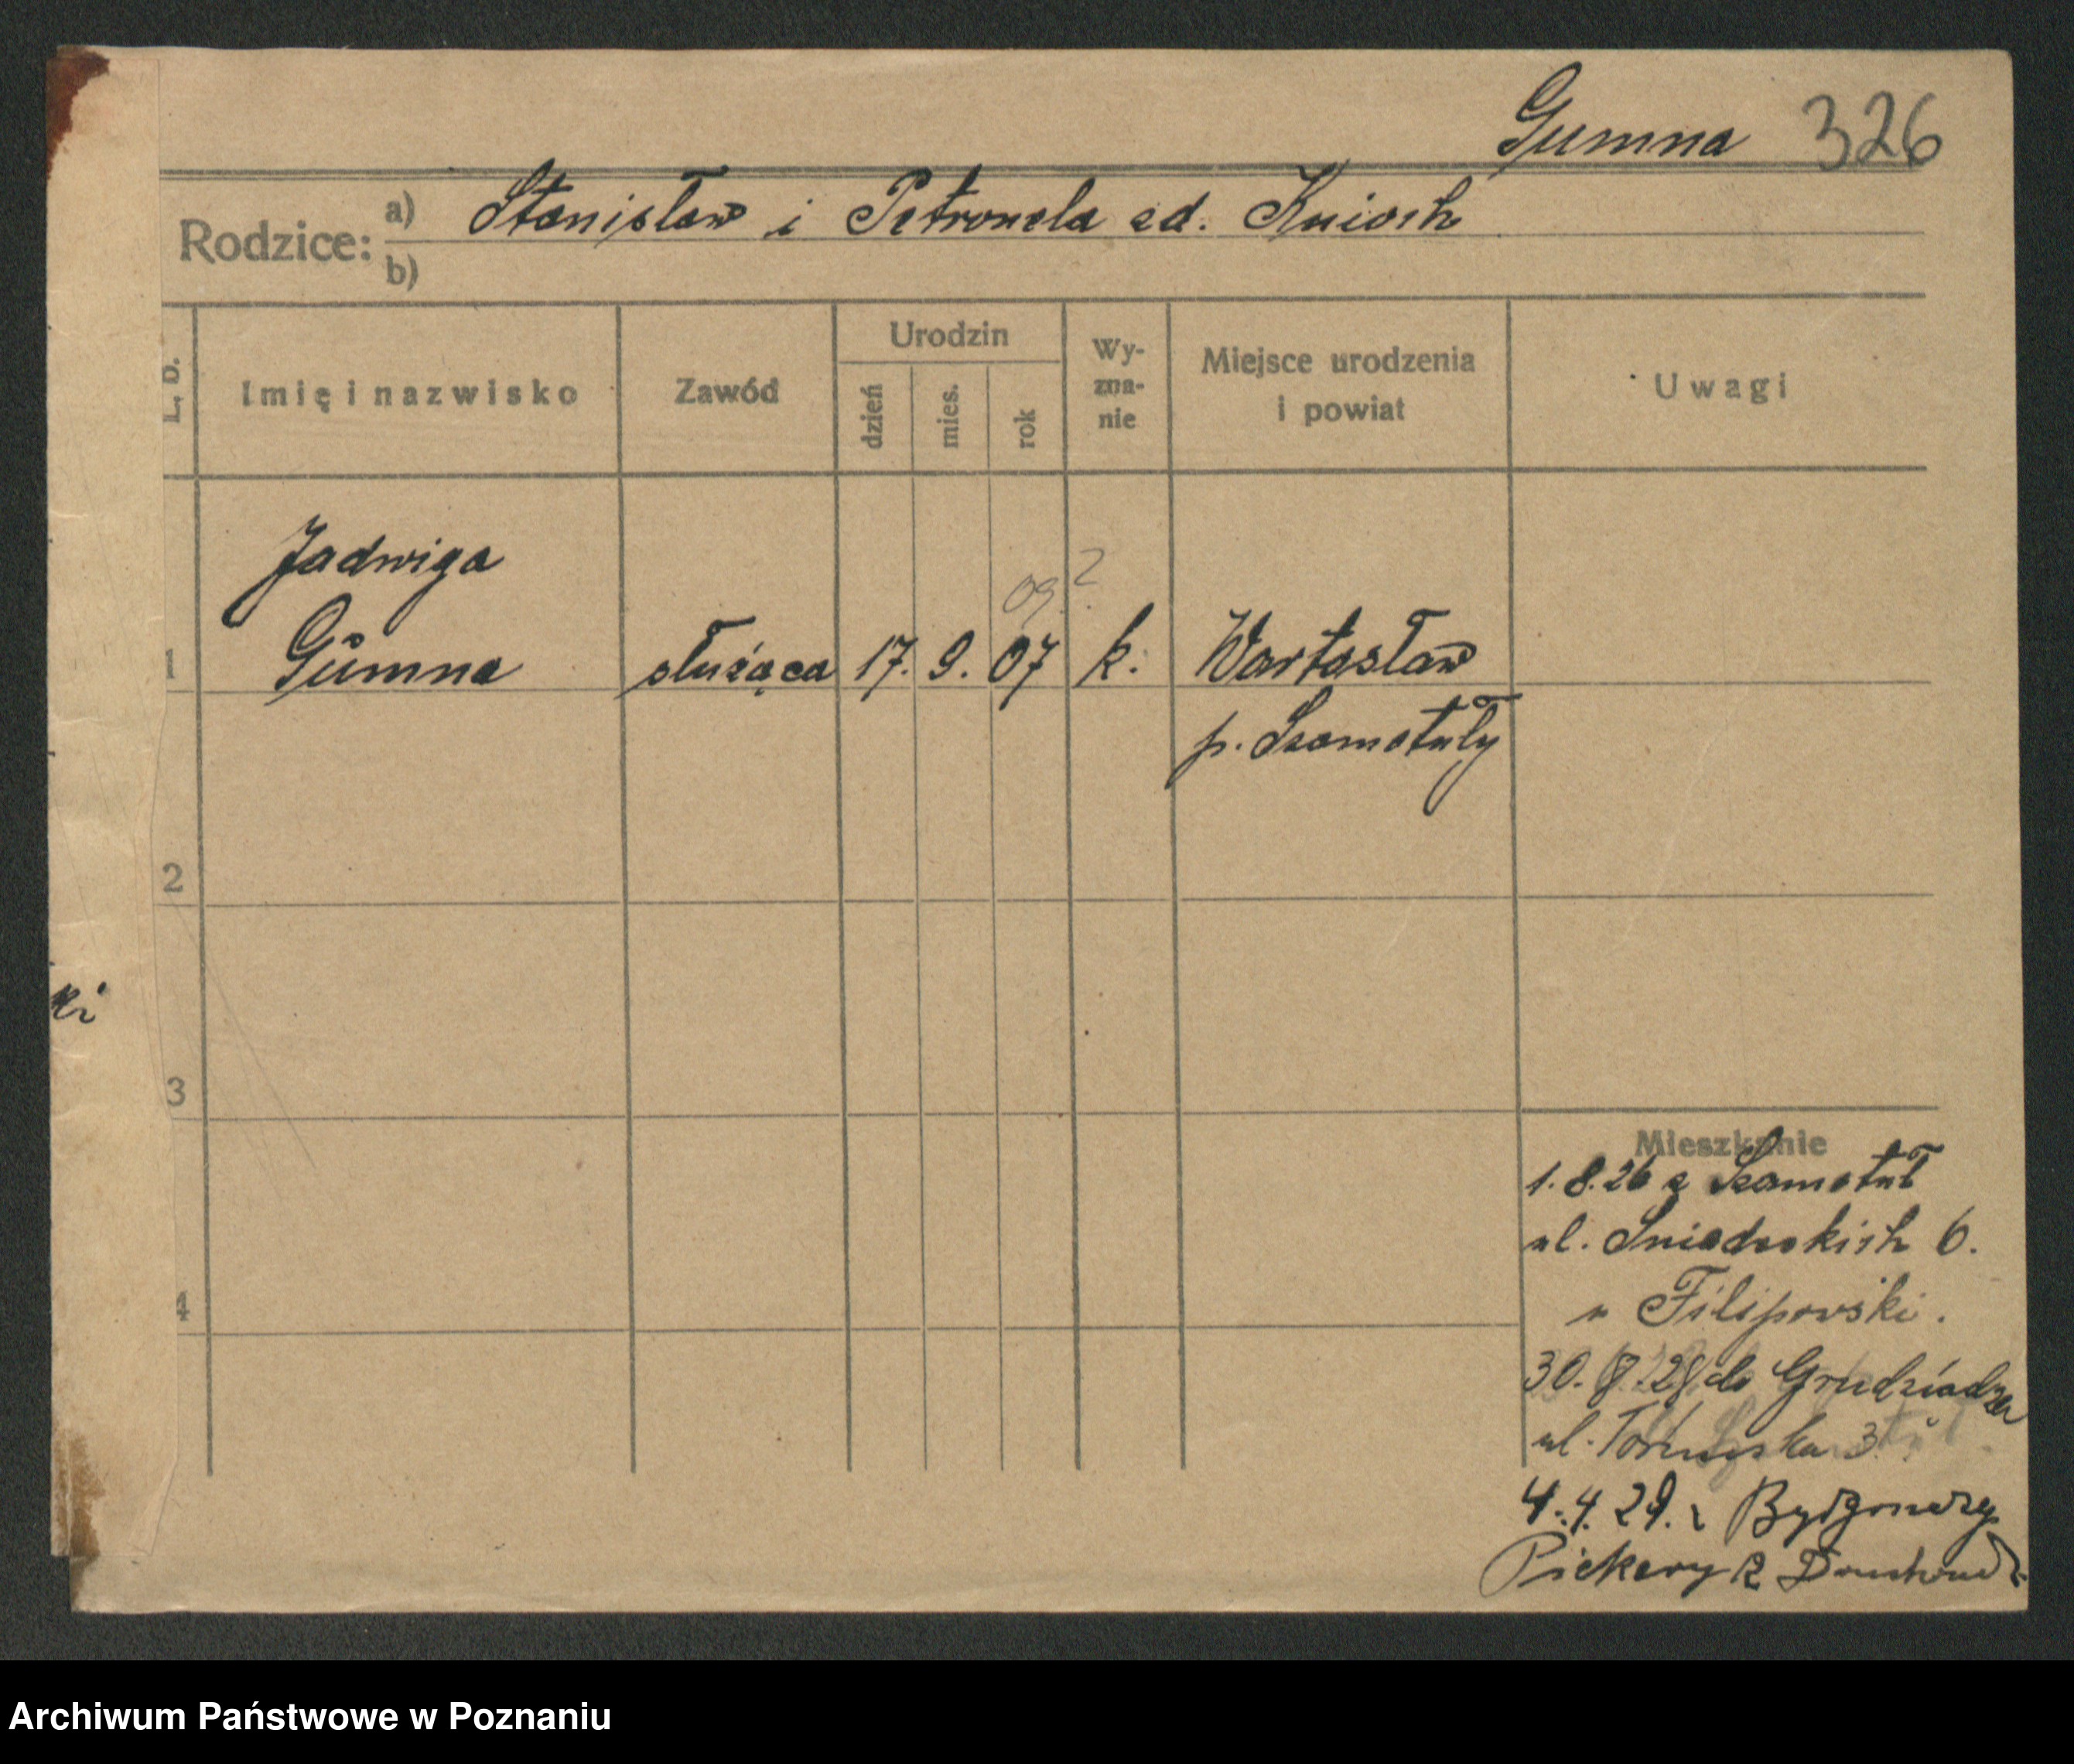 Gumna 326
Rodzice: a) Stanisław i Petronela zd. Knioch
b)
L. b.
Imię i nazwisko
Zawód
Urodzin
dzień
mies.
rok
Wy-
zna-
nie
Miejsce urodzenia
i powiat
Uwagi
Jadwiga
09 ?
1 Gumna służąca 17. 9. 07 k. Wartosław
p. Szamotuły
2
ki
3
Mieszkanie
1.8.26 z Szamotuł
ul. Śniadeckich 6.
u Filipowski.
4
30. 8. 28 do Grudziądza
ul. Toruńska 3
4.4.29. z Bydgoszczy
Piekary
Archiwum Państwowe w Poznaniu